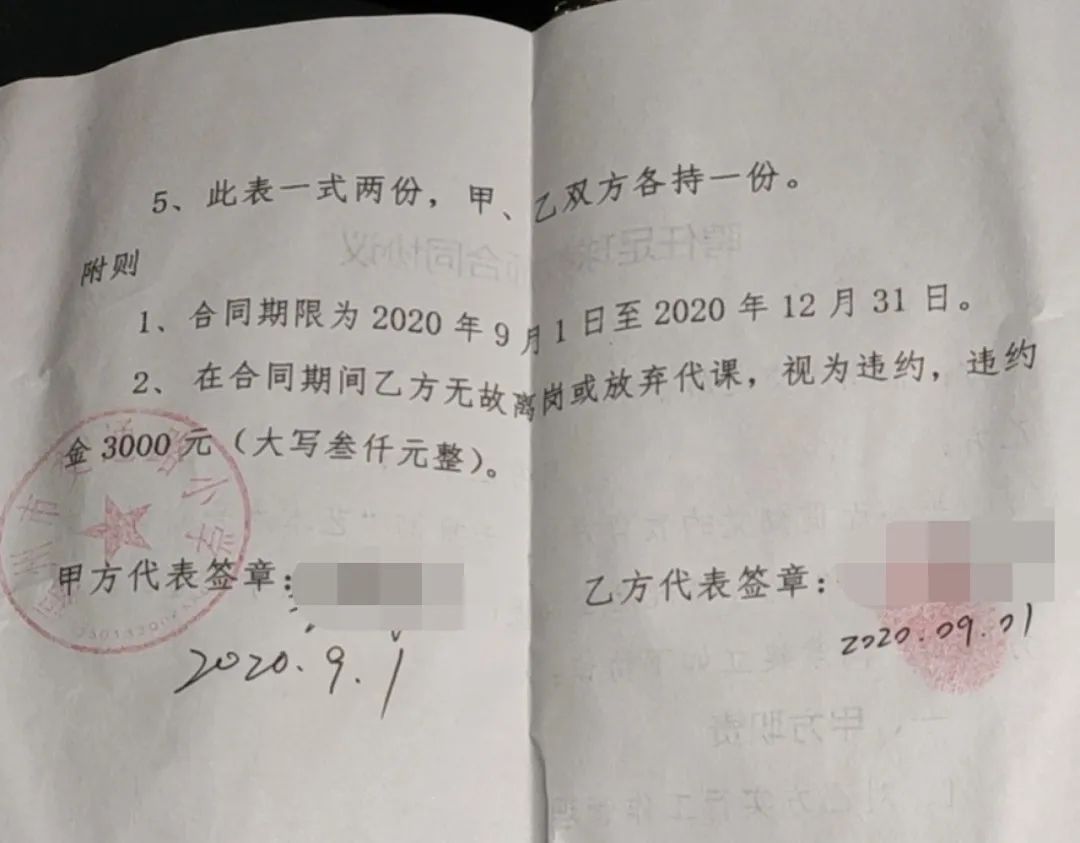 5、此表一式两份，甲、乙双方各持一份。
附则
1、合同期限为 2020 年 9 月 1 日至 2020 年 12 月 31 日。
2、在合同期间乙方无故离岗或放弃代课，视为违约，违约
金 3000 元（大写叁仟元整）。
甲方代表签章：
乙方代表签章：
2020.9.1
2020.09.01